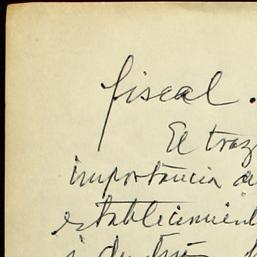 fiscal.
El traz
importancia de
establecimient